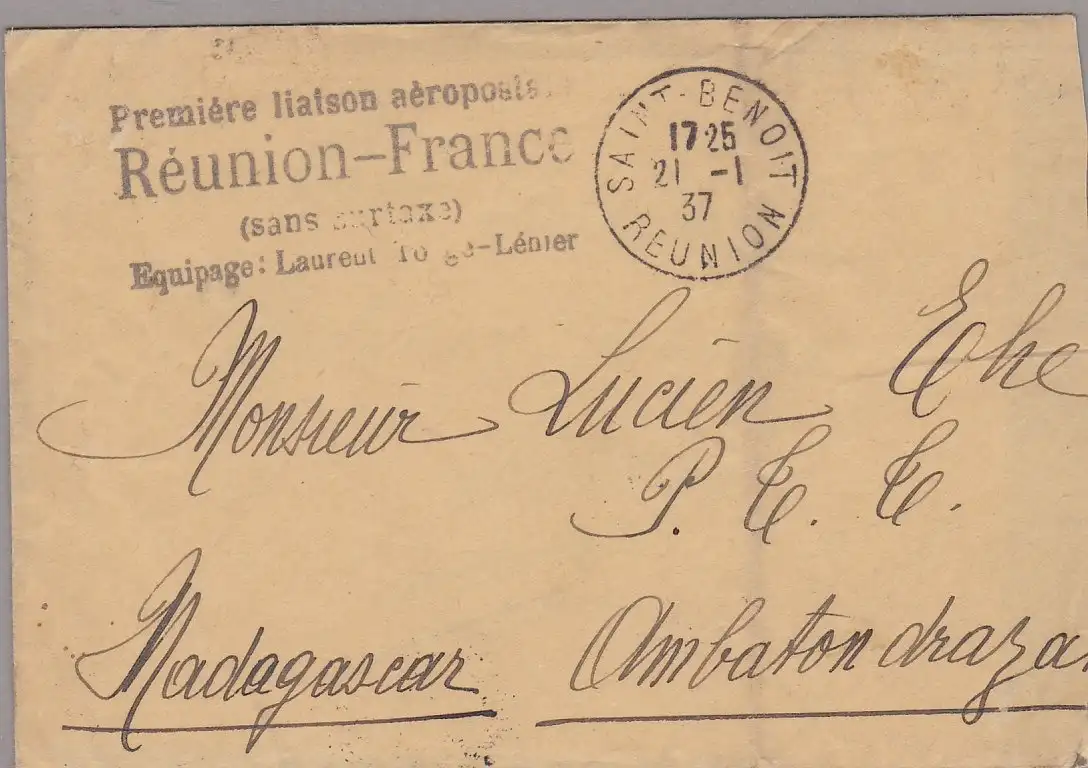 Premiére liaison aéroposta
Réunion–France
(sans surtaxe)
Equipage: Laurent Lénier
SAINT-BENOIT
17 25
21 -1
37
REUNION
Monsieur Lucien Ehe
P. T. T.
Madagascar Ambatondraza